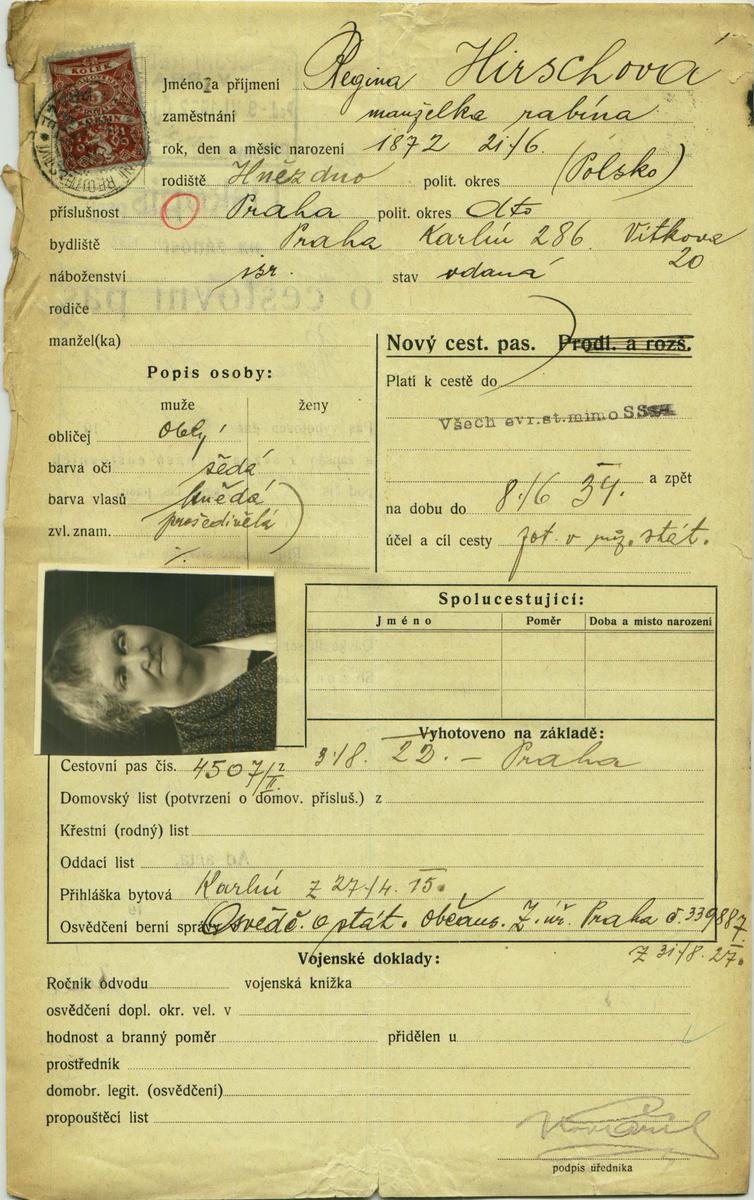 KOLEK
Jméno a příjmení Regina Hirschová
zaměstnání manželka rabína
rok, den a měsíc narození 1872 21/6.
rodiště Hnězdno polit. okres (Polsko)
příslušnost Praha polit. okres dto
bydliště Praha Karlín 286. Vítkova
20
náboženství isr. stav vdaná
rodiče
manžel(ka)
Nový cest. pas. Prodl. a rozš.
Popis osoby:
Platí k cestě do
muže ženy
Všech evr.st.mimo SSSR
obličej oblý
barva očí šedá
a zpět
barva vlasů hnědá
na dobu do 8/6 34.
prošedivělá
zvl. znam. ·/.
účel a cíl cesty stát.
Spolucestující:
Jméno Poměr Doba a místo narození
Vyhotoveno na základě:
Cestovní pas čís. 4507/II z 3/8. 22. – Praha
Domovský list (potvrzení o domov. přísluš.) z
Křestní (rodný) list
Oddací list
Přihláška bytová Karlín z 27/4. 15.
Osvědčení berní správy Osvědč. o stát. občans. Z. úř. Praha č. 339887
z 31/8. 27.
Vojenské doklady:
Ročník odvodu vojenská knížka
osvědčení dopl. okr. vel. v
hodnost a branný poměr přidělen u
prostředník
domobr. legit. (osvědčení)
propouštěcí list
podpis úředníka